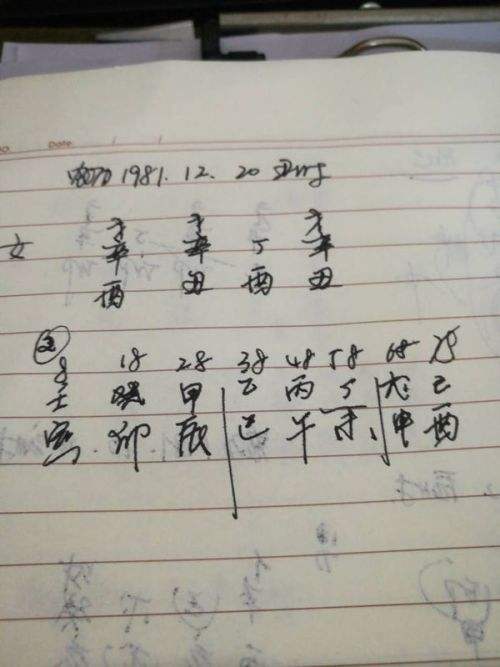 Date
阴历 1981. 12. 20 丑时
才 才 才
女 辛 辛 丁 辛
酉 丑 酉 丑
8 18 28 38 48 58 68 78
壬 癸 甲 乙 丙 丁 戊 己
寅 卯 辰 巳 午 未、 申 酉